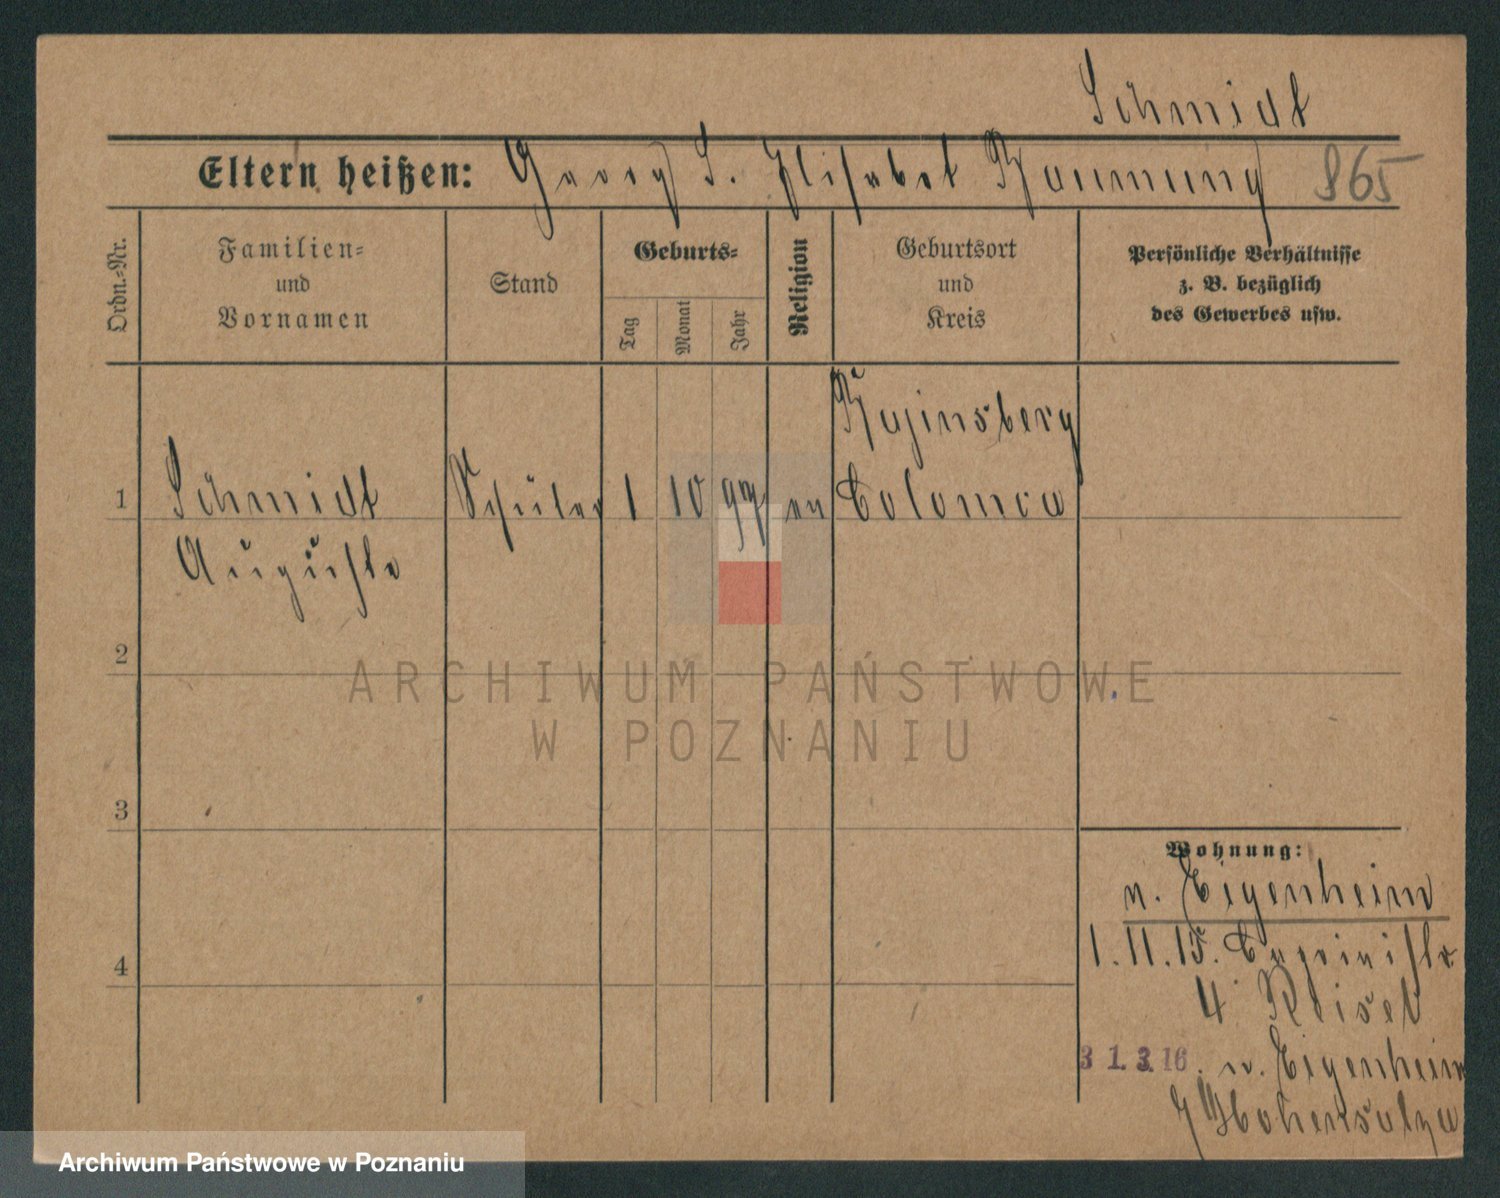 Schmidt
Eltern heißen: Georg S. Elisabet Baumung 865
Ordn.-Nr.
Familien-
und
Vornamen
Stand
Geburts-
Tag
Monat
Jahr
Religion
Geburtsort
und
Kreis
Persönliche Verhältnisse
z. B. bezüglich
des Gewerbes usw.
1
Schmidt
Auguste
Schüler
1
10
97
ev
Colomea
2
3
4
ARCHIWUM PAŃSTWOWE
W POZNANIU
Wohnung:
n. Eigenheim
1.11.15.
4
31.3.16. n. Eigenheim
Hohensalza
Archiwum Państwowe w Poznaniu